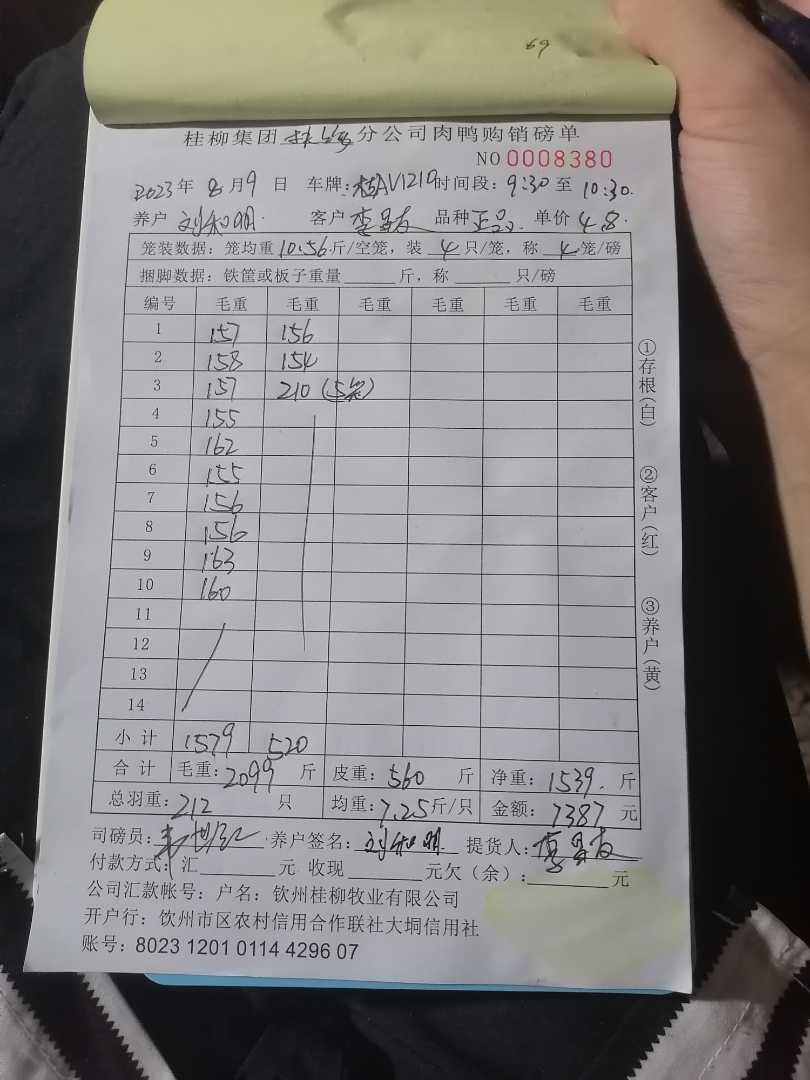 69
桂柳集团 分公司肉鸭购销磅单
NO 0008380
2023年 8月9日 车牌:桂AV1210 时间段:9:30至10:30.
养户 刘和明. 客户 李昌友 品种 正品. 单价 4.8.
笼装数据:笼均重10.56斤/空笼,装 4 只/笼,称 4 笼/磅
捆脚数据:铁筐或板子重量______斤,称______只/磅
编号 毛重 毛重 毛重 毛重 毛重 毛重
1 157 156
2 158 154
3 157 210 (5笼)
4 155
5 162
6 155
7 156
8 156
9 163
10 160
11
12
13
14
小计 1579 520
合计 毛重:2099斤 皮重:560斤 净重:1539.斤
总羽重:212只 均重:7.25斤/只 金额:7387元
司磅员: 养户签名:刘和明. 提货人:李昌友
付款方式:汇______元 收现______元欠(余):______元
公司汇款帐号:户名:钦州桂柳牧业有限公司
开户行:钦州市区农村信用合作联社大垌信用社
账号:8023 1201 0114 4296 07
①存根(白)
②客户(红)
③养户(黄)